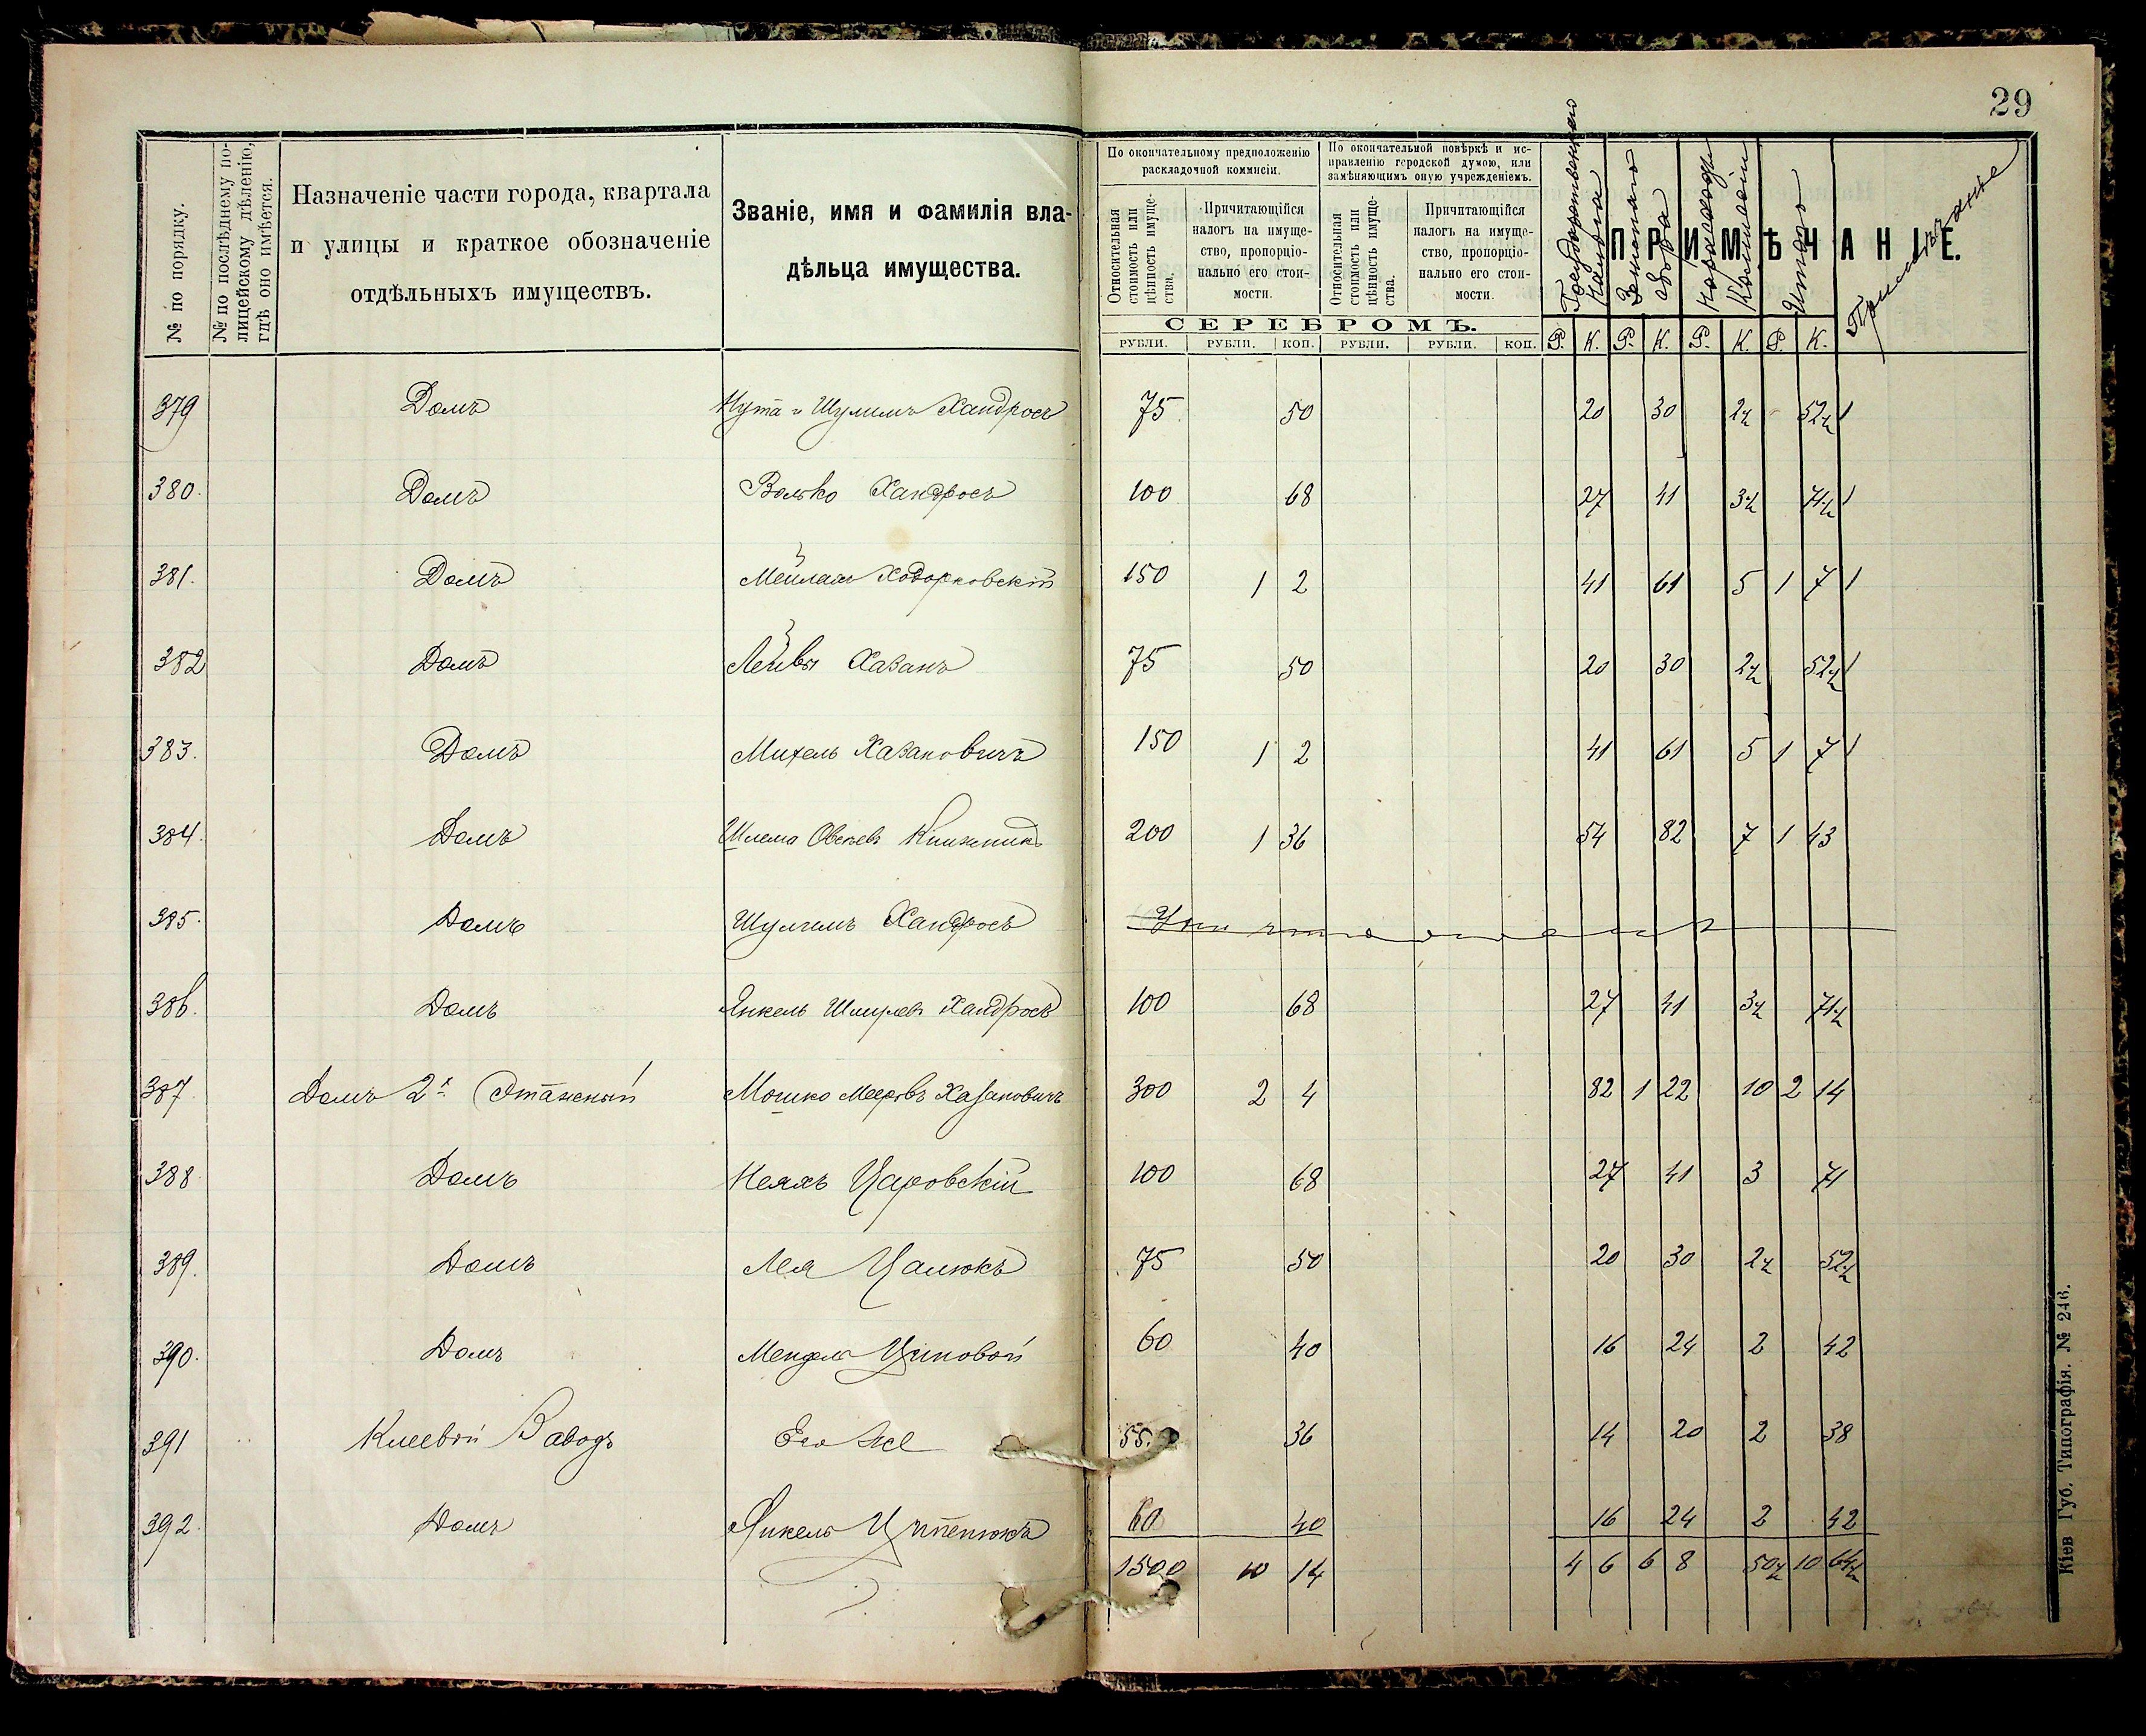 29
№ по порядку.
№ по послѣднему по-
лицейскому дѣленію,
гдѣ оно имѣется.
Назначеніе части города, квартала
и улицы и краткое обозначеніе
отдѣльныхъ имуществъ.
Званіе, имя и фамилія вла-
дѣльца имущества.
По окончательному предположенію
раскладочной коммисіи.
По окончательной повѣркѣ и ис-
правленію городской думою, или
замѣняющимъ оную учрежденіемъ.
Относительная
стоимость или
цѣнность имуще-
ства.
Причитающійся
налогъ на имуще-
ство, пропорціо-
нально его стои-
мости.
Относительная
стоимость или
цѣнность имуще-
ства.
Причитающійся
налогъ на имуще-
ство, пропорціо-
нально его стои-
мости.
Государственнаго
налога
Земскаго
сбора
на расходы
Коммисіи
Итого
ПРИМѢЧАНІЕ.
Примѣчаніе
СЕРЕБРОМЪ.
РУБЛИ. РУБЛИ. КОП. РУБЛИ. РУБЛИ. КОП. Р. К. Р. К. Р. К. Р. К.
379 Домъ Нута и Шулимъ Хандросъ 75 50 20 30 2½ 52½
380. Домъ Волько Хандросъ 100 68 27 41 3½ 71½
381. Домъ Мейлахъ Ходорковскій 150 1 2 41 61 5 1 7
382 Домъ Лейвы Хазанъ 75 50 20 30 2½ 52½
383. Домъ Михель Хазановичъ 150 1 2 41 61 5 1 7
384. Домъ Шлема Книжникъ 200 1 36 54 82 7 1 43
385. Домъ Шулимъ Хандросъ
386. Домъ Янкель Хандросъ 100 68 27 41 3½ 71½
387. Домъ 2х Этажный Мошко Мееровъ Хазановичъ 300 2 4 82 1 22 10 2 14
388 Домъ Царовскій 100 68 27 41 3 71
389. Домъ Лея Цалюкъ 75 50 20 30 2½ 52½
390. Домъ Мендель 60 40 16 24 2 42
391 Клеевой Заводъ Его же 55. 36 14 20 2 38
392. Домъ Янкель 60 40 16 24 2 42
1500 10 14 4 6 6 8 50½ 10 64½
Кіев Губ. Типографія. № 246.